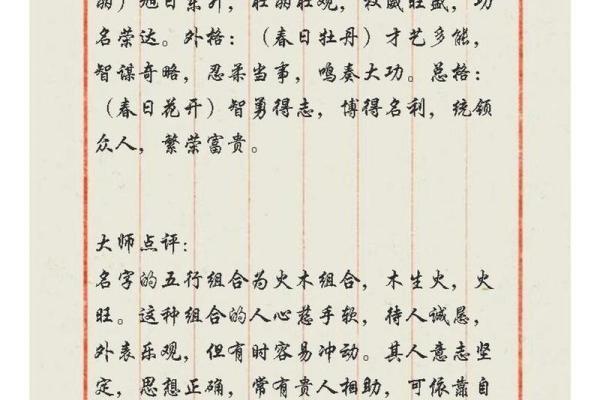 丽）旭日东升，壮丽壮观，权威旺盛，功
名荣达。外格：（春日牡丹）才艺多能，
智谋奇略，忍柔当事，鸣奏大功。总格：
（春日花开）智勇得志，博得名利，统领
众人，繁荣富贵。
大师点评：
名字的五行组合为火木组合，木生火，火
旺。这种组合的人心慈手软，待人诚恳，
外表乐观，但有时容易冲动。其人意志坚
定，思想正确，常有贵人相助，可依靠自